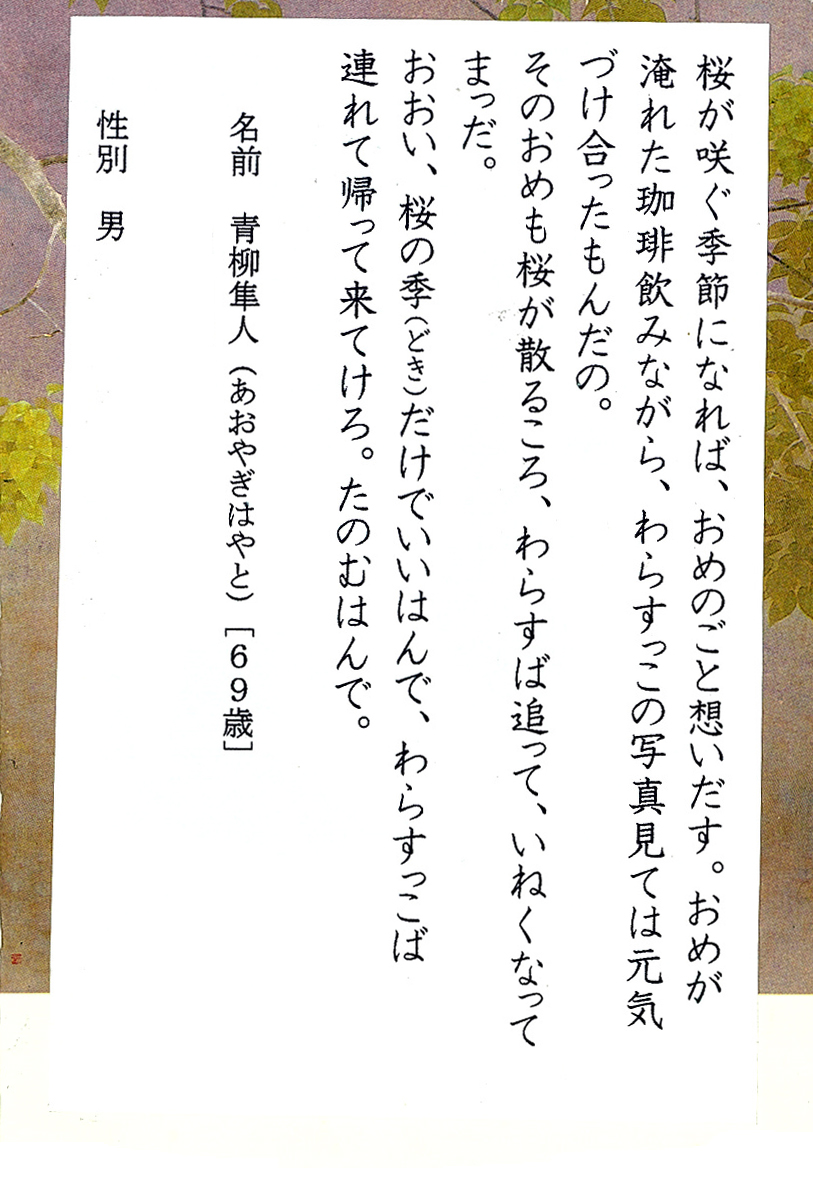 桜が咲ぐ季節になれば、おめのごと想いだす。おめが
淹れた珈琲飲みながら、わらすっこの写真見ては元気
づけ合ったもんだの。
そのおめも桜が散るころ、わらすば追って、いねくなって
まっだ。
おおい、桜の季(どき)だけでいいはんで、わらすっこば
連れて帰って来てけろ。たのむはんで。
名前　青柳隼人（あおやぎはやと）［69歳］
性別　男